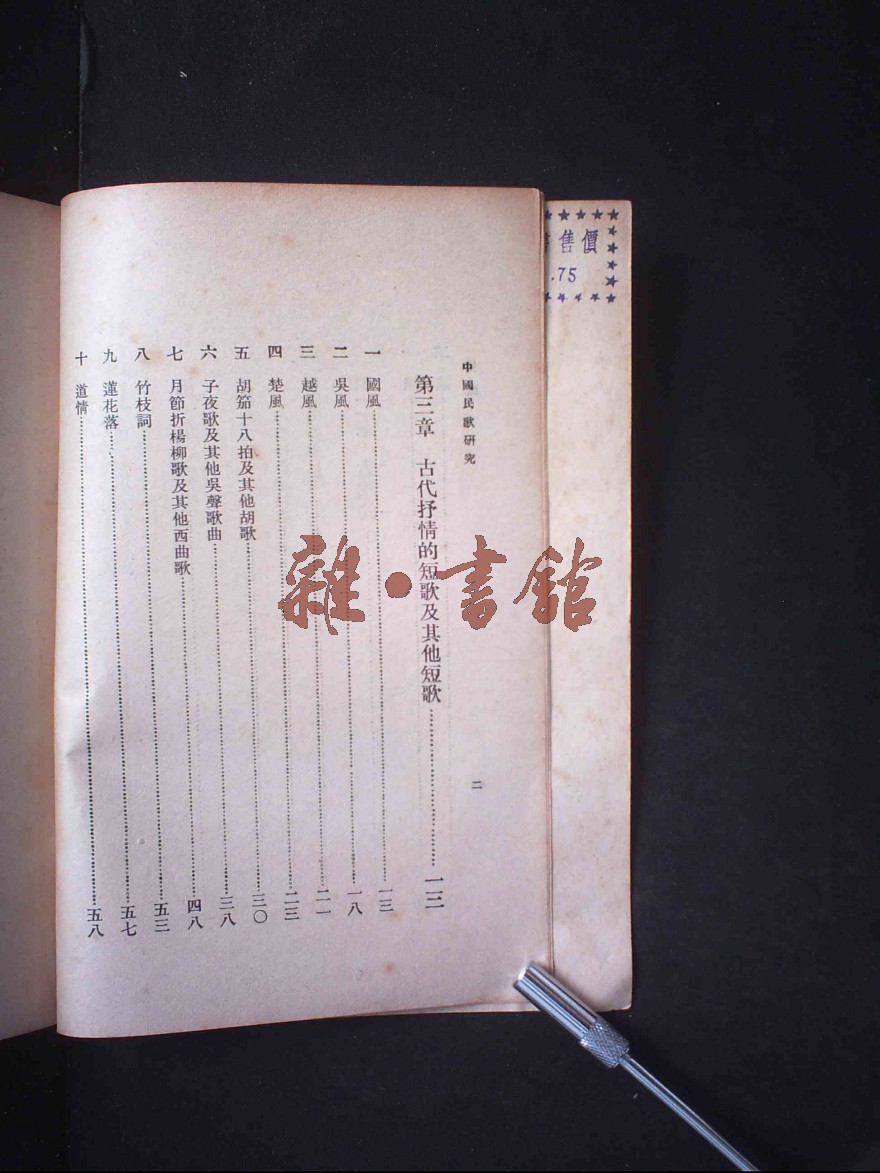 中國民歌研究
二
第三章　古代抒情的短歌及其他短歌……一三
一　國風……一三
二　吳風……一八
三　越風……二一
四　楚風……二三
五　胡笳十八拍及其他胡歌……三〇
六　子夜歌及其他吳聲歌曲……三八
七　月節折楊柳歌及其他西曲歌……四八
八　竹枝詞……五三
九　蓮花落……五七
十　道情……五八
售價
.75
雜·書館